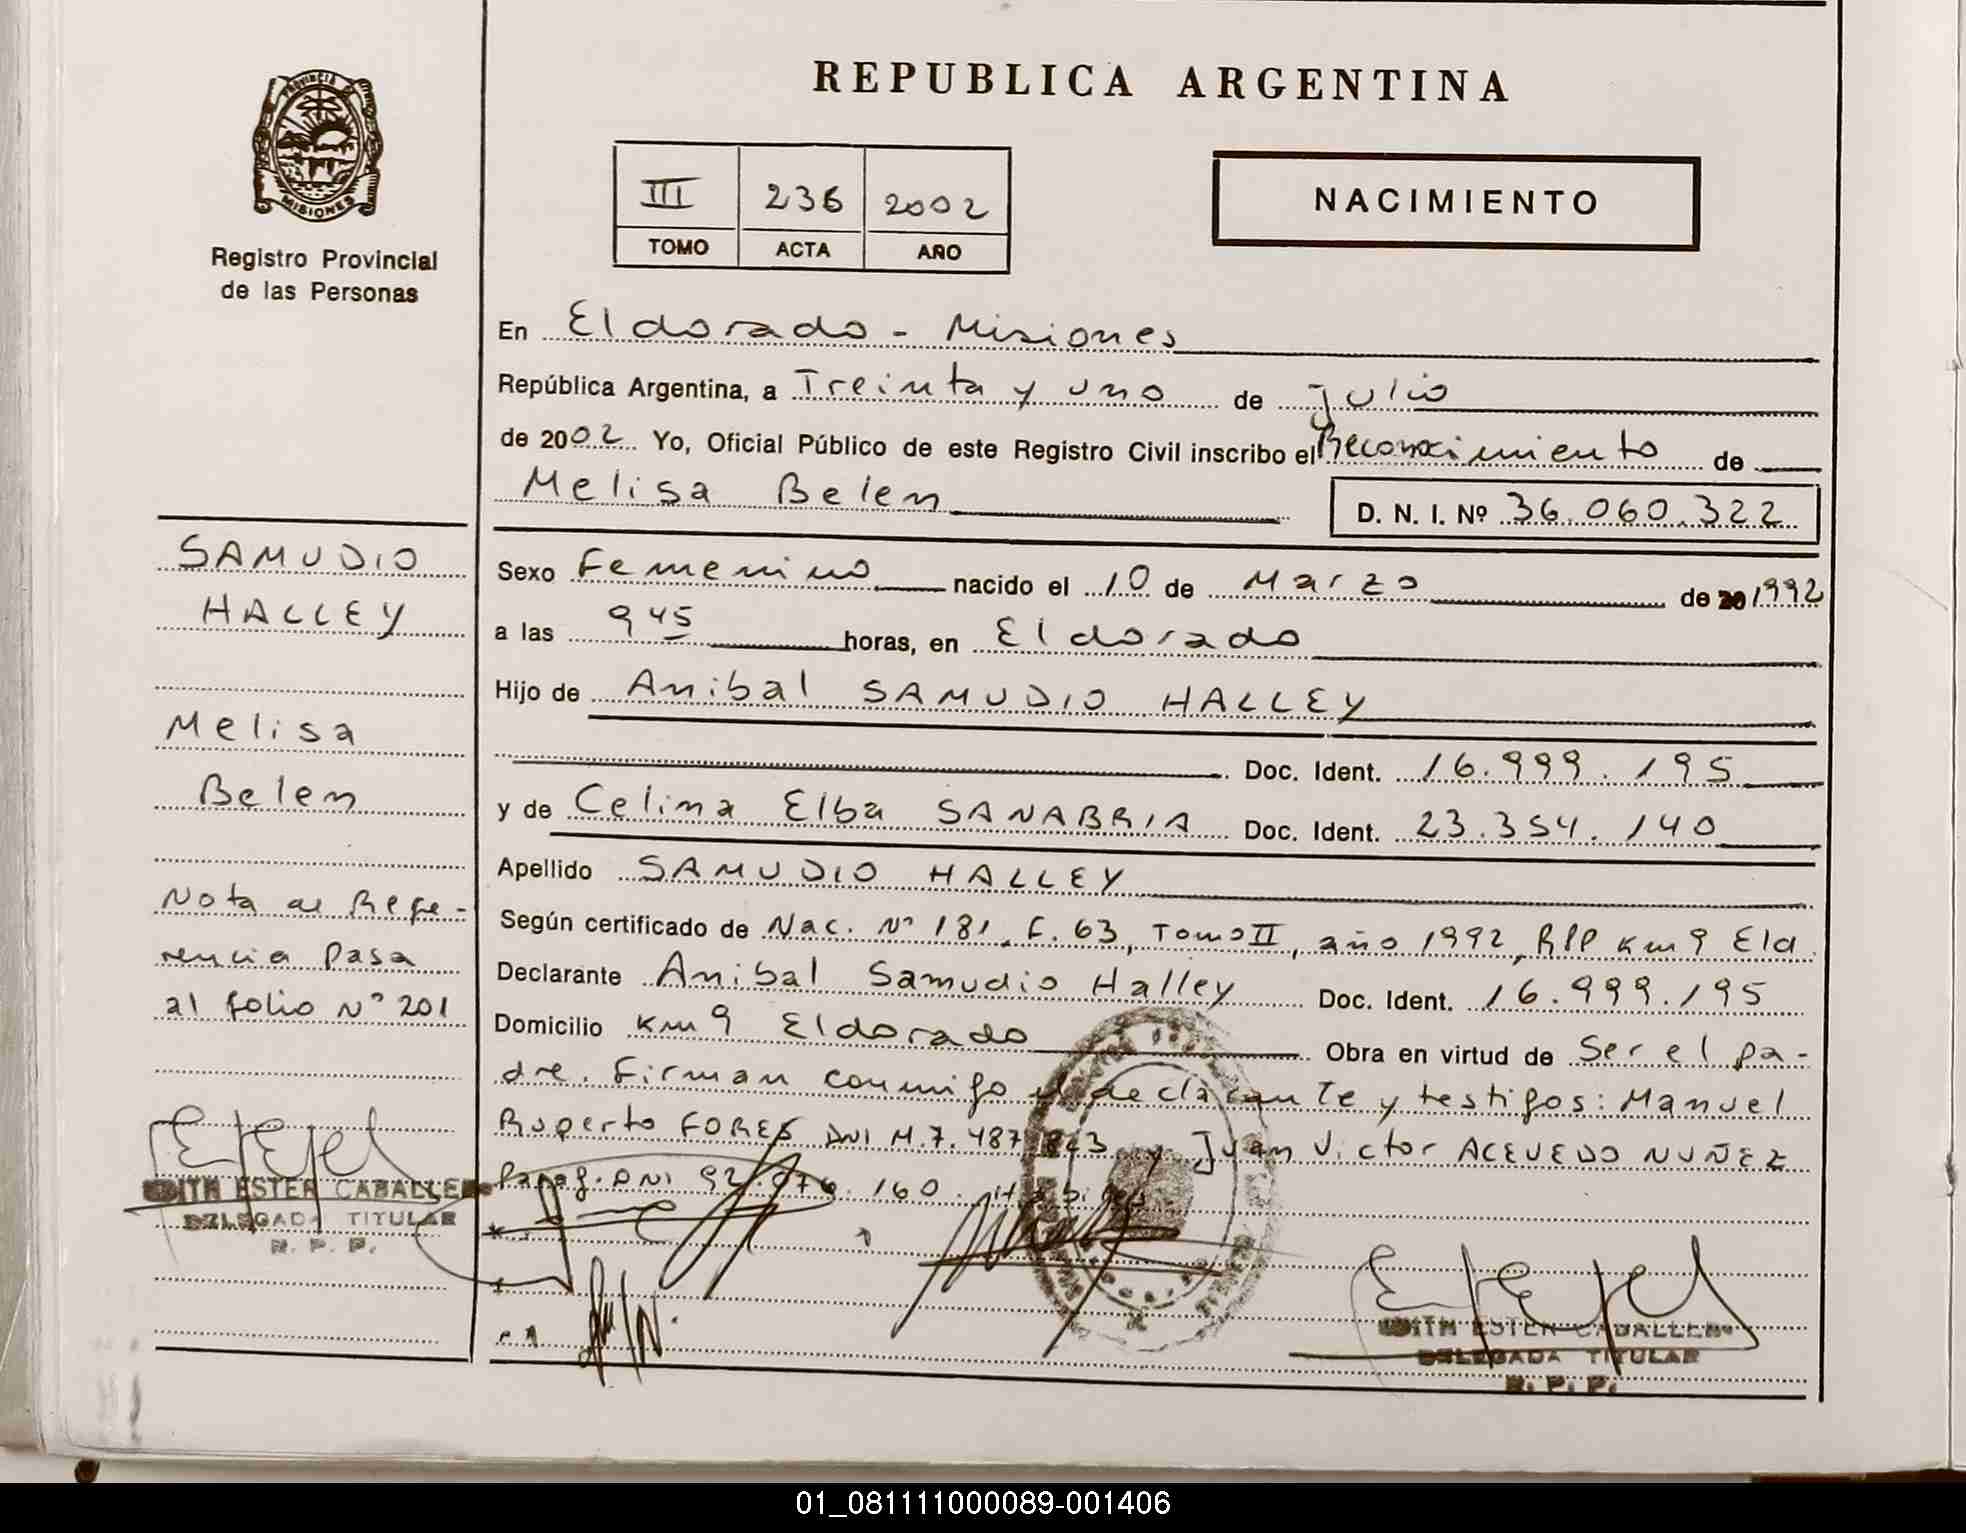 REPUBLICA ARGENTINA
PROVINCIA
MISIONES
Registro Provincial
de las Personas
III 236 2002
TOMO ACTA AÑO
NACIMIENTO
En Eldorado - Misiones
República Argentina, a Treinta y uno de Julio
de 2002 Yo, Oficial Público de este Registro Civil inscribo el Reconocimiento de
Melisa Belen D. N. I. Nº 36.060.322
SAMUDIO
HALLEY
Melisa
Belen
Nota de Refe-
rencia Pasa
al folio Nº 201
EDITH ESTER CABALLERO
DELEGADA TITULAR
R. P. P.
Sexo Femenino nacido el 10 de Marzo de 20 1992
a las 9 45 horas, en Eldorado
Hijo de Anibal SAMUDIO HALLEY
Doc. Ident. 16.999.195
y de Celina Elba SANABRIA Doc. Ident. 23.354.140
Apellido SAMUDIO HALLEY
Según certificado de Nac. Nº 181, F. 63, Tomo II, año 1992, RPP Km 9 Eld
Declarante Anibal Samudio Halley Doc. Ident. 16.999.195
Domicilio Km 9 Eldorado Obra en virtud de Ser el pa-
dre. Firman conmigo el declarante y testigos: Manuel
Ruperto FORES DNI M.7.487 y Juan Victor ACEVEDO NUÑEZ
Parag. DNI 92. 160.
EDITH ESTER CABALLERO
DELEGADA TITULAR
R. P. P.
01_081111000089-001406